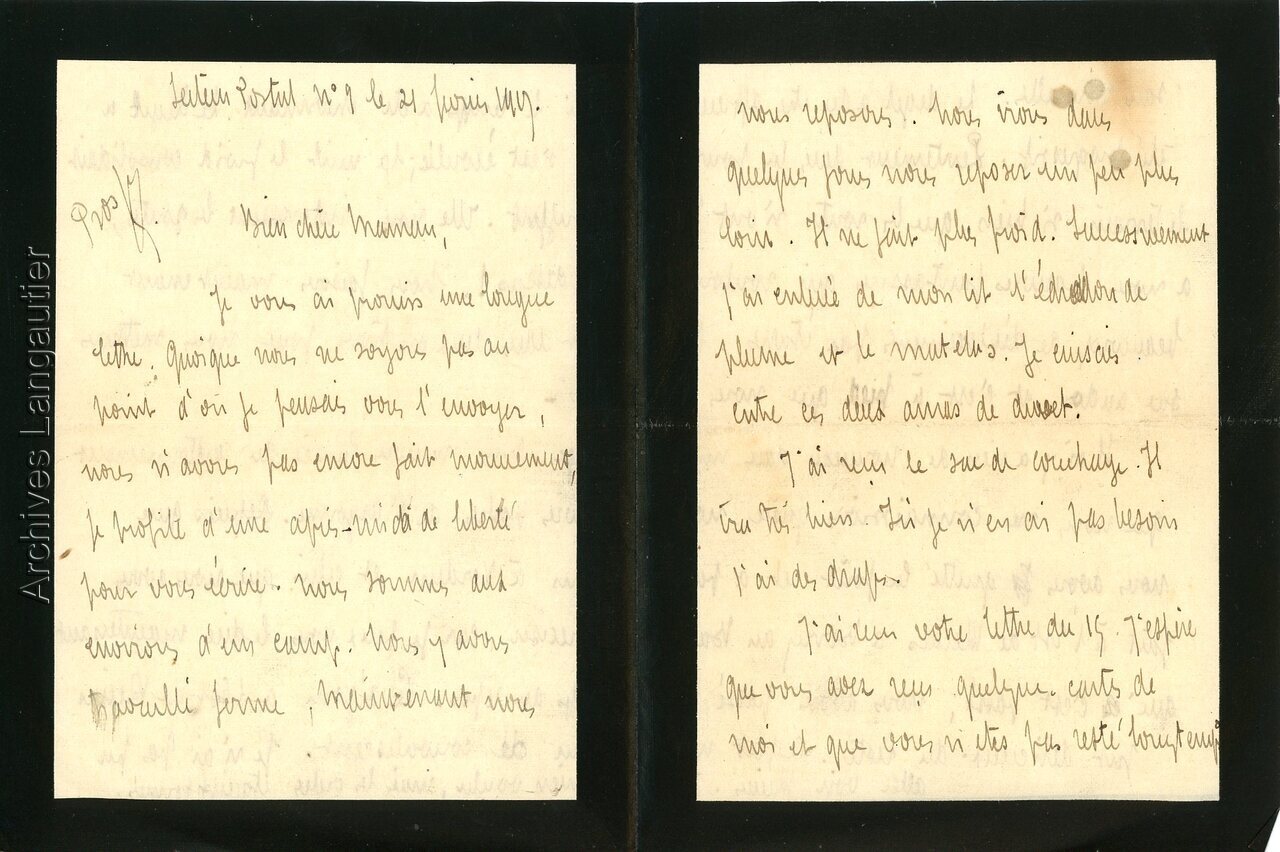 Secteur Postal n° 9 le 21 février 1917.
Bien chère Maman,
Je vous ai promis une longue
lettre. Quoique nous ne soyons pas au
point d'où je pensais vous l'envoyer,
nous n'avons pas encore fait mouvement,
je profite d'une après-midi de liberté
pour vous écrire. Nous sommes aux
environs d'un camp. Nous y avons
travaillé ferme, maintenant nous
nous reposons. Nous irons dans
quelques jours nous reposer un peu plus
loin. Il ne fait plus froid. Successivement
j'ai enlevé de mon lit l'édredon de
plume et le matelas. Je cuisais
entre ces deux amas de duvet.
J'ai reçu le sac de couchage. Il
ira très bien. Ici je n'en ai pas besoin
j'ai des draps.
J'ai reçu votre lettre du 15. J'espère
que vous avez reçu quelque cartes de
moi et que vous n'êtes pas resté longtemps
Archives Langautier